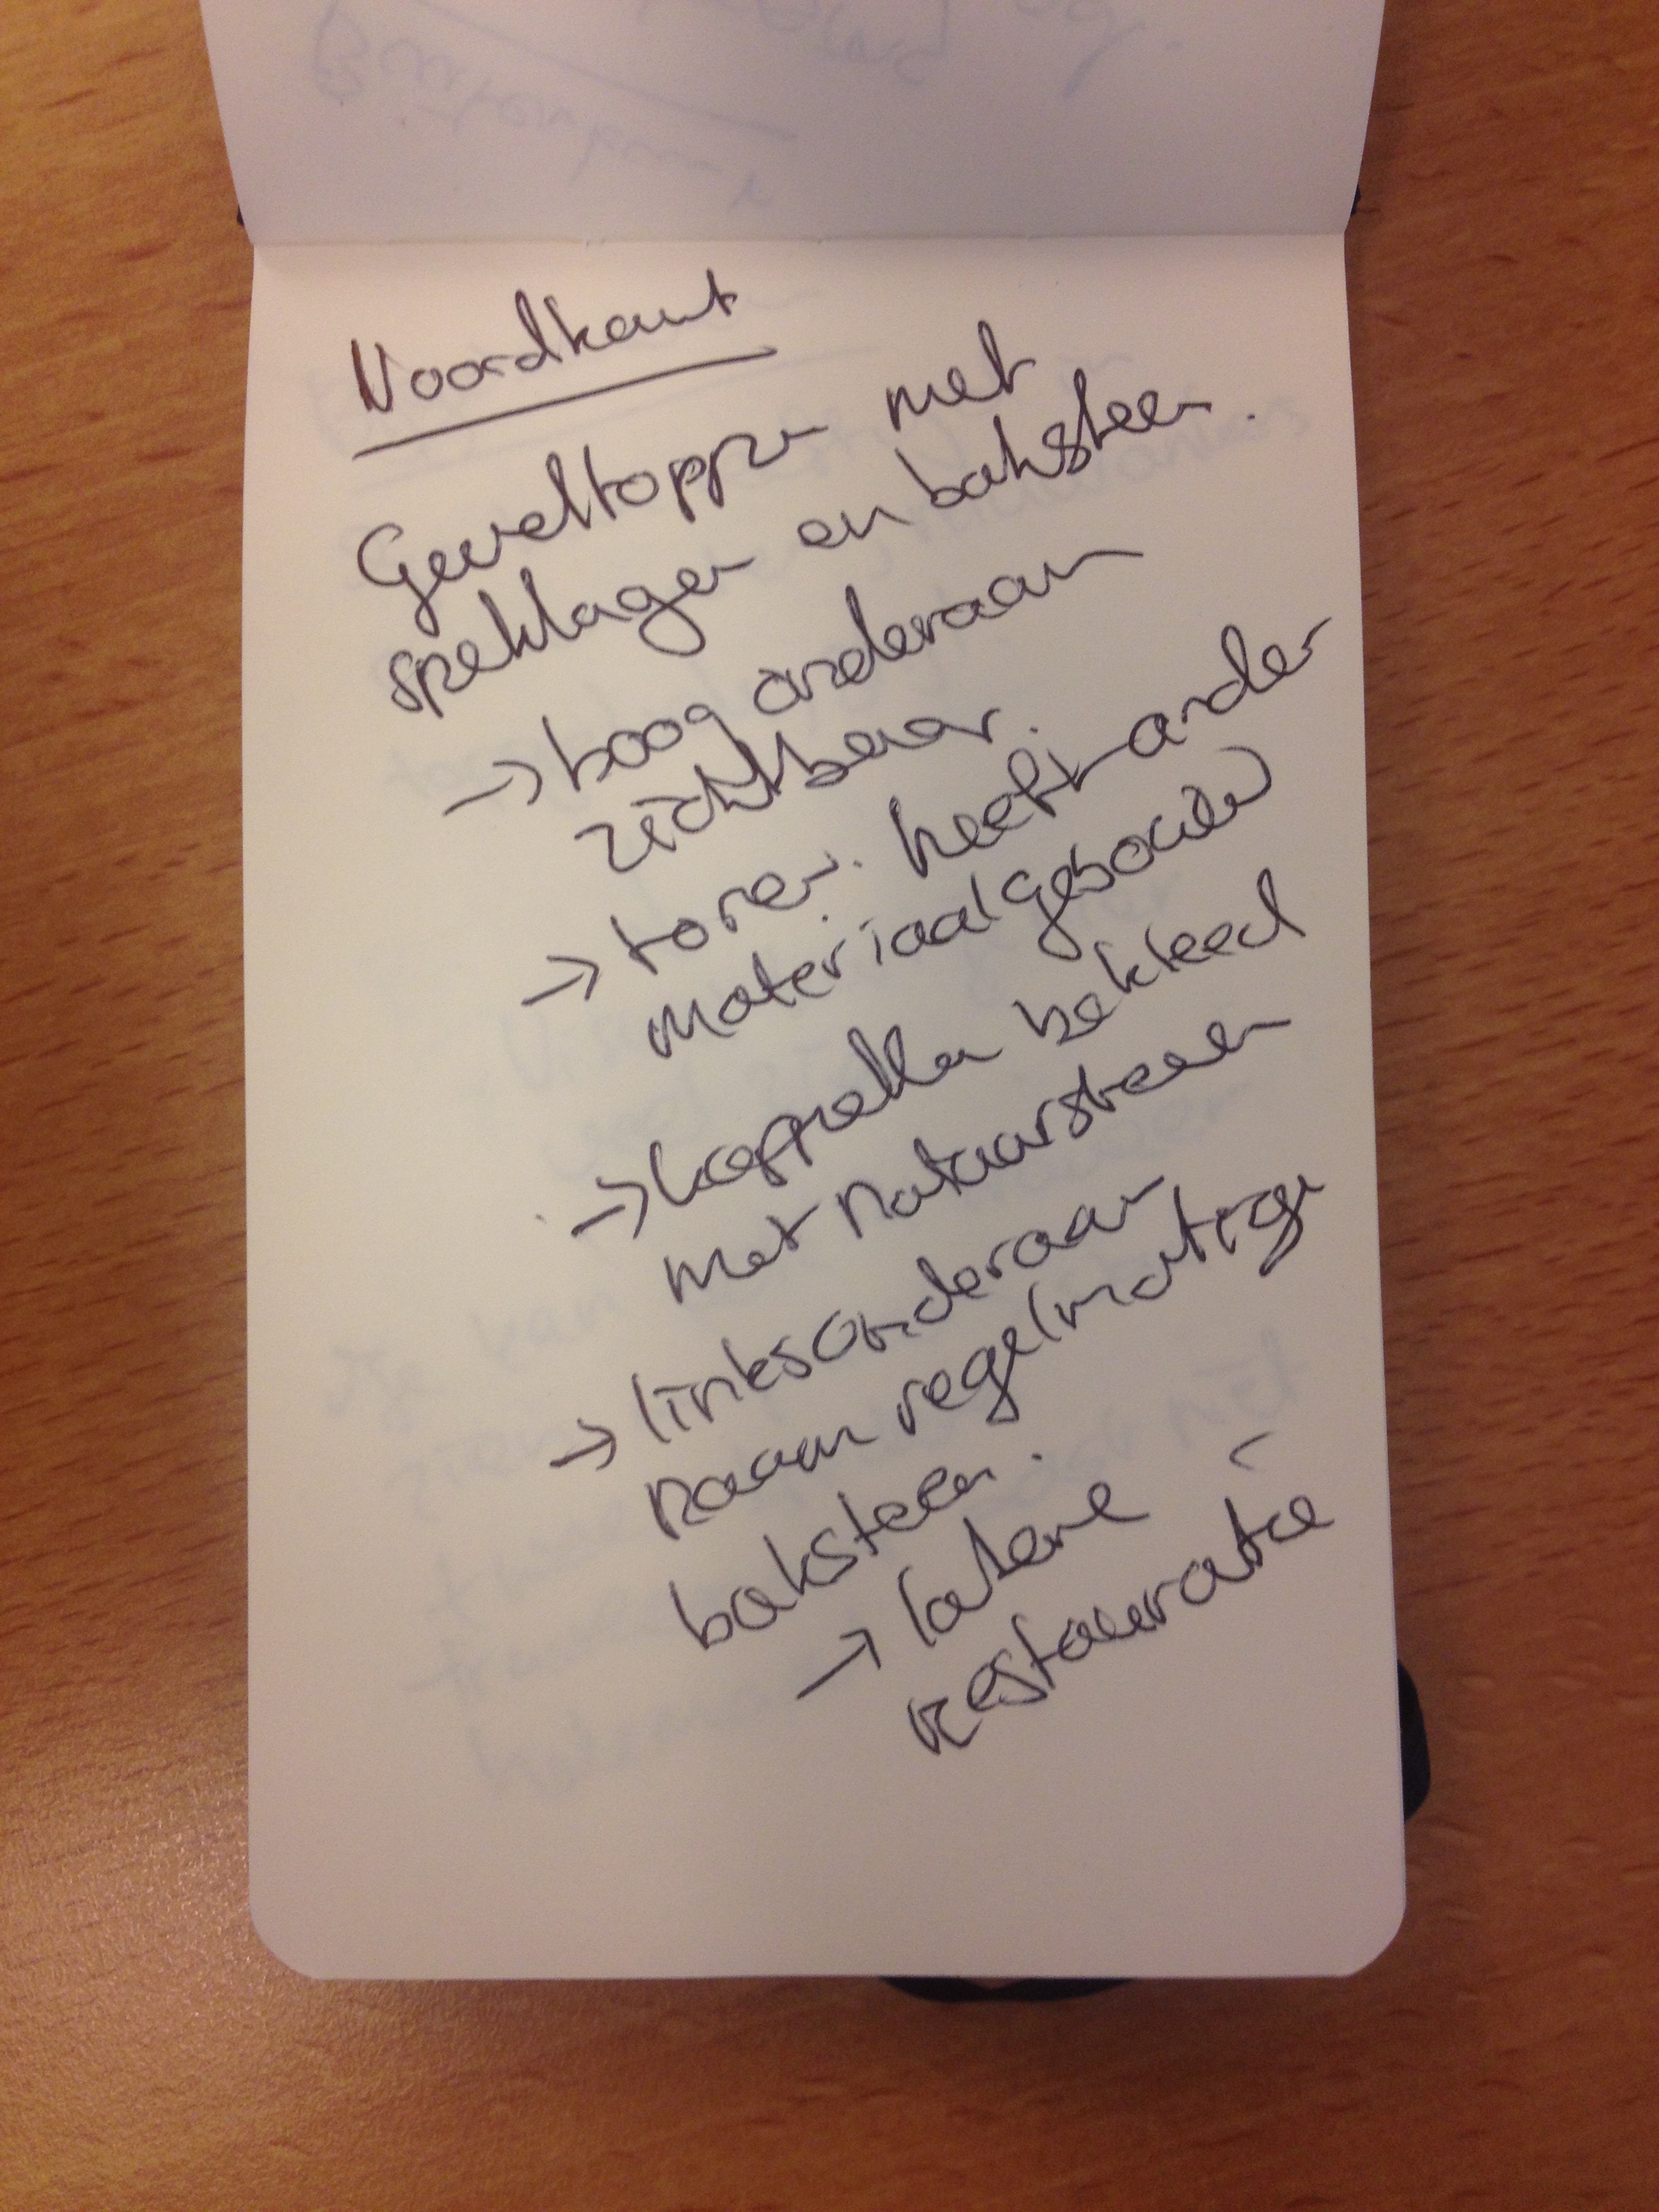 Noordkant
Geveltoppen met
speklagen en baksteen.
→ boog onderaan
zichtbaar.
→ toren. heeft ander
materiaalgebruik
→ kappellen bekleed
met natuursteen
→ linksonderaan
raam regelmatige
baksteen.
→ latere
restauratie